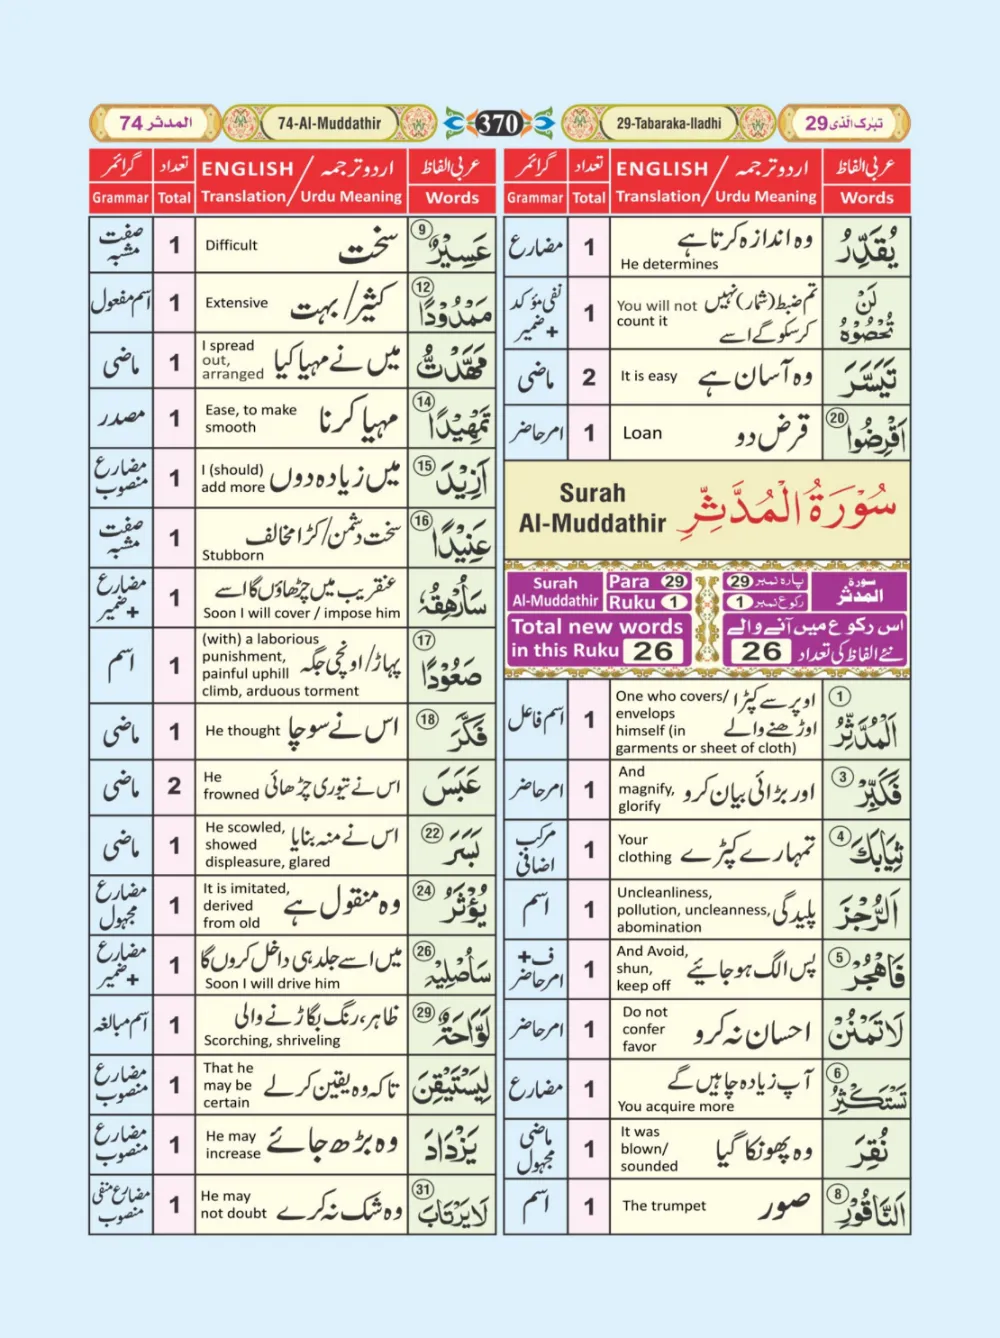 المدثر 74
74-Al-Muddathir
370
29-Tabaraka-lladhi
تبٰرک الّذی 29
گرائمر تعداد ENGLISH / اردو ترجمہ عربی الفاظ
Grammar Total Translation / Urdu Meaning Words
يُقَدِّرُ وہ اندازہ کرتا ہے He determines 1 مضارع
لَنْ تُحْصُوْهُ تم ضبط (شمار) نہیں کر سکو گے اسے You will not count it 1 نفی مؤکد + ضمیر
تَيَسَّرَ وہ آسان ہے It is easy 2 ماضی
اَقْرِضُوا 20 قرض دو Loan 1 امر حاضر
Surah Al-Muddathir سُوْرَةُ الْمُدَّثِّرِ
Surah Al-Muddathir Para 29 Ruku 1
29 پارہ نمبر 1 رکوع نمبر سورة المدثر
Total new words in this Ruku 26
اس رکوع میں آنے والے نئے الفاظ کی تعداد 26
الْمُدَّثِّرُ 1 اوپر سے کپڑا اوڑھنے والے One who covers/ envelops himself (in garments or sheet of cloth) 1 اسم فاعل
فَكَبِّرْ 3 اور بڑائی بیان کرو And magnify, glorify 1 امر حاضر
ثِيَابَكَ 4 تمہارے کپڑے Your clothing 1 مرکب اضافی
الرُّجْزَ پلیدگی Uncleanliness, pollution, uncleanness, abomination 1 اسم
فَاهْجُرْ 5 پس الگ ہو جائیے And Avoid, shun, keep off 1 ف+ امر حاضر
لَا تَمْنُنْ احسان نہ کرو Do not confer favor 1 امر حاضر
تَسْتَكْثِرُ 6 آپ زیادہ چاہیں گے You acquire more 1 مضارع
نُقِرَ وہ پھونکا گیا It was blown/ sounded 1 ماضی مجہول
النَّاقُوْرِ 8 صور The trumpet 1 اسم
گرائمر تعداد ENGLISH / اردو ترجمہ عربی الفاظ
Grammar Total Translation / Urdu Meaning Words
عَسِيْرٌ 9 سخت Difficult 1 صفت مشبہ
مَمْدُوْدًا 12 کثیر/بہت Extensive 1 اسم مفعول
مَهَّدْتُّ میں نے مہیا کیا I spread out, arranged 1 ماضی
تَمْهِيْدًا 14 مہیا کرنا Ease, to make smooth 1 مصدر
اَزِيْدَ 15 میں زیادہ دوں I (should) add more 1 مضارع منصوب
عَنِيْدًا 16 سخت دشمن/کڑا مخالف Stubborn 1 صفت مشبہ
سَاُرْهِقُهٗ عنقریب میں چڑھاؤں گا اسے Soon I will cover / impose him 1 مضارع + ضمیر
صَعُوْدًا 17 پہاڑ/اونچی جگہ (with) a laborious punishment, painful uphill climb, arduous torment 1 اسم
فَكَّرَ 18 اس نے سوچا He thought 1 ماضی
عَبَسَ اس نے تیوری چڑھائی He frowned 2 ماضی
بَسَرَ 22 اس نے منہ بنایا He scowled, showed displeasure, glared 1 ماضی
يُؤْثَرُ 24 وہ منقول ہے It is imitated, derived from old 1 مضارع مجہول
سَاُصْلِيْهِ 26 میں اسے جلد ہی داخل کروں گا Soon I will drive him 1 مضارع + ضمیر
لَوَّاحَةٌ 29 ظاہر، رنگ بگاڑنے والی Scorching, shriveling 1 اسم مبالغہ
لِيَسْتَيْقِنَ تاکہ وہ یقین کر لے That he may be certain 1 مضارع منصوب
يَزْدَادَ وہ بڑھ جائے He may increase 1 مضارع منصوب
لَا يَرْتَابَ 31 وہ شک نہ کرے He may not doubt 1 مضارع منفی منصوب